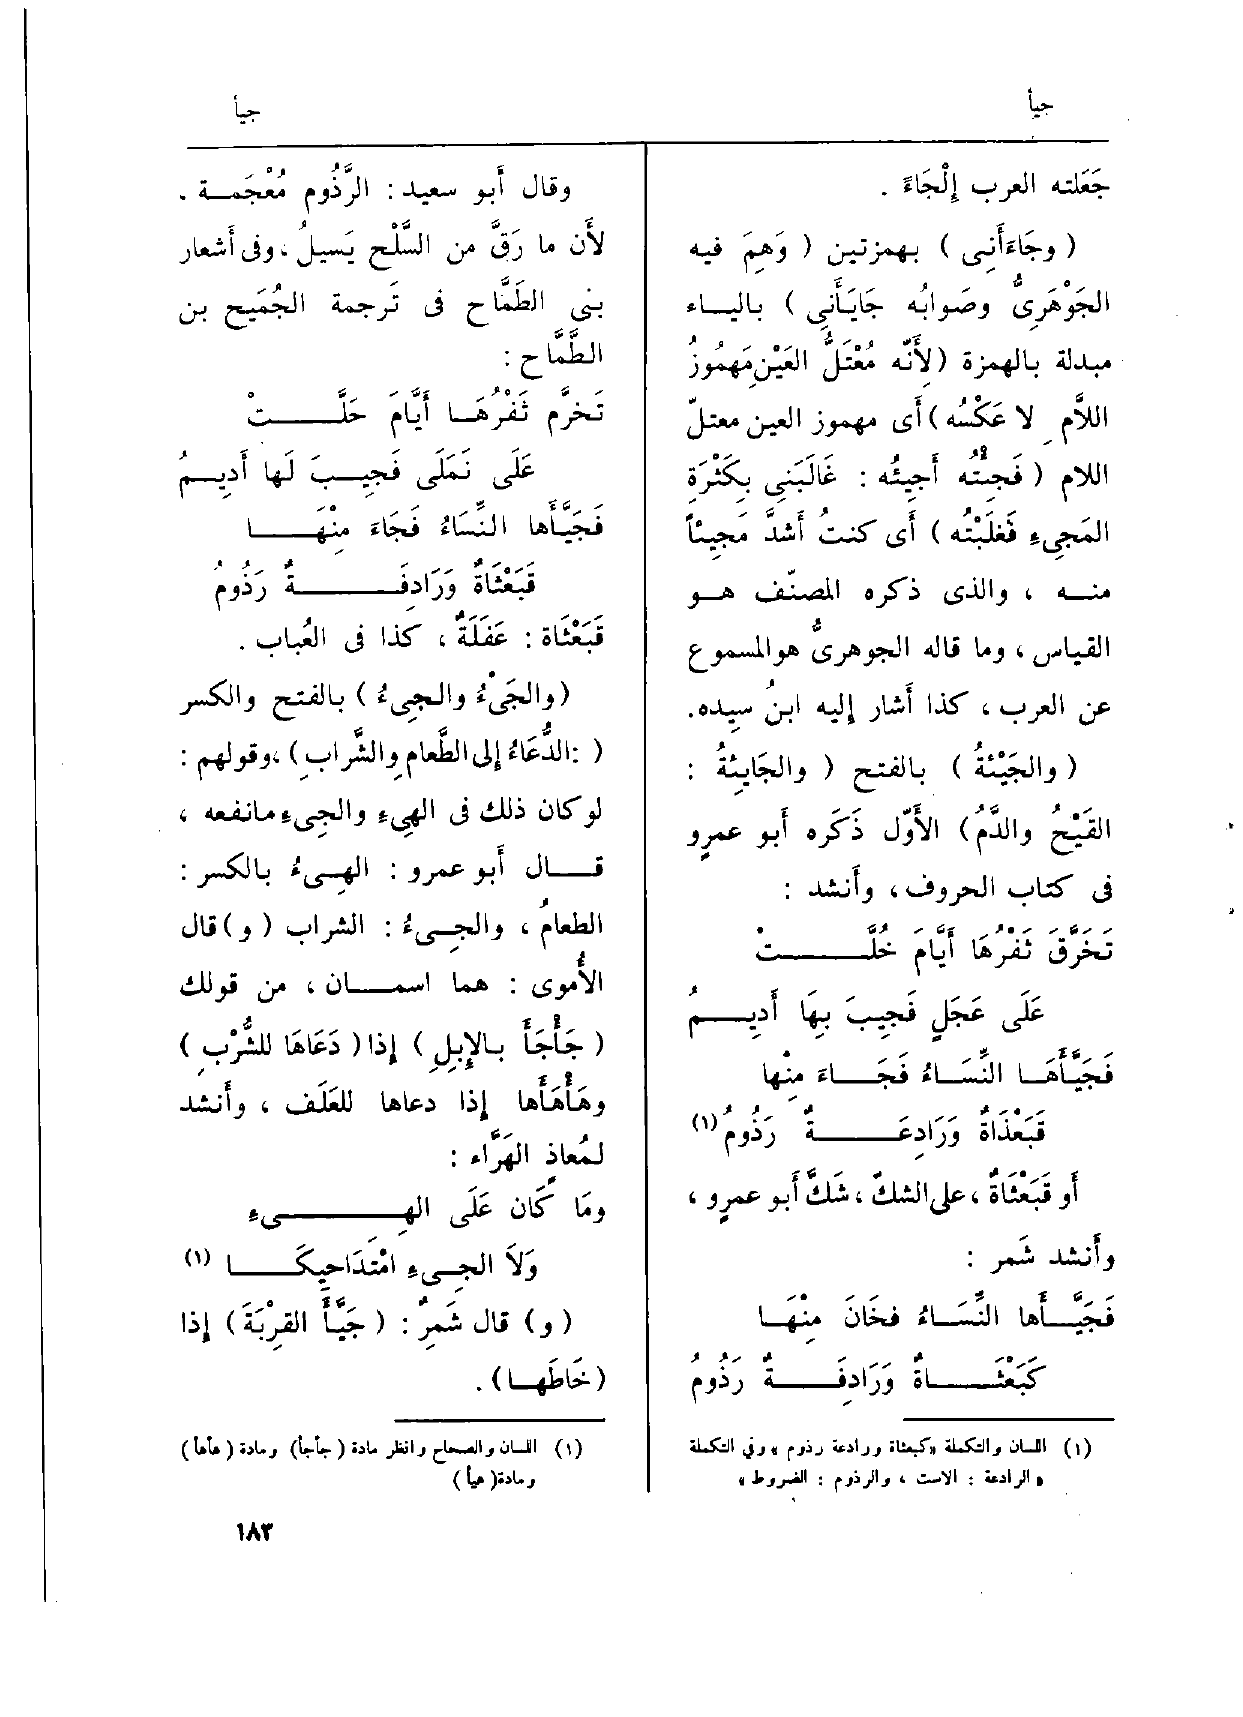 جيأ
جيأ
جَعَلته العرب إِلْجَاءً .
( وجَاءَأَنِى ) بهمزتين ( وَهِمَ فيه
الجَوْهَرِىُّ وصَوابُه جَايَأَنِى ) باليـاء
مبدلة بالهمزة (لأَنَّه مُعْتَلُّ العَيْنِ مَهْمُوزُ
اللاَّمِ لا عَكْسُه) أَى مهموز العين معتلّ
اللام ( فَجِئْتُه أَجِيئُه : غَالَبَنِى بِكَثْرَةِ
المَجِىءِ فَغَلَبْتُه ) أَى كنتُ أَشدَّ مَجِيئاً
منـه ، والذى ذكره المصنّف هـو
القياس ، وما قاله الجوهرىُّ هو المسموع
عن العرب ، كذا أَشار إِليه ابنُ سِيدِه.
( والجَيْئَةُ ) بالفتح ( والجَايِئَةُ :
القَيْحُ والدَّمُ ) الأَوّل ذَكَره أَبو عمرٍو
فى كتاب الحروف ، وأَنشد :
تَخَرَّقَ ثَفْرُهَا أَيَّامَ حُلَّـــتْ
عَلَى عَجَلٍ فَجِيبَ بِهَا أَدِيـــمُ
فَجَيَّأَهَـا النِّسَـاءُ فَجَـاءَ مِنْها
قَبَعْذَاةٌ وَرَادِعَـــةٌ رَذُومُ (١)
أَو قَبَعْثَاةٌ ، على الشكّ ، شَكَّ أَبو عمرٍو ،
وأَنشد شَمر :
فَجَيَّـأَها النِّسَـاءُ فخَانَ مِنْهَـا
كَبَعْثَـــاةٌ وَرَادِفَـــةٌ رَذُومُ
(١) اللسان والتكملة «كبعثاة ورادعة رذوم » وفي التكملة
« الرادعة : الاست ، والرذوم : الضروط »
وقال أَبو سعيد : الرَّذُوم مُعْجَمـة .
لأَن ما رَقَّ من السَّلْحِ يَسيلُ ، وفى أَشعار
بنى الطَّمَّاح فى تَرجمة الجُمَيح بن
الطَّمَّاح :
تَخرَّم ثَفْرُهَـا أَيَّامَ حَلَّـــتْ
عَلَى نَمَلَى فَجِيـبَ لَها أَدِيـمُ
فَجَيَّأَها النِّسَاءُ فَجَاءَ مِنْهَـــا
قَبَعْثَاةٌ وَرَادِفَـــةٌ رَذُومُ
قَبَعْثَاة : عَفَلَةٌ ، كذا فى العُباب .
(والجَىْءُ والجِىءُ ) بالفتح والكسر
( :الدُّعَاءُ إِلى الطَّعامِ والشَّرابِ) ، وقولهم :
لو كان ذلك فى الهِىءِ والجِىءِ مانفعه ،
قـال أَبو عمرو : الهِـىءُ بالكسر :
الطعامُ ، والجِـىءُ : الشراب ( و) قال
الأُموى : هما اسمـان ، من قولك
( جَأْجَأَ بالإِبِلِ ) إِذا ( دَعَاهَا للشُّرْبِ )
وهَأْهَأَها إِذا دعاها للعَلَف ، وأَنشد
لمُعاذٍ الهَرَّاء :
ومَا كَانَ عَلَى الهِـــىءِ
وَلاَ الجِـىءِ امْتِدَاحِيكَـــا (١)
( و) قال شَمِرٌ : ( جَيَّأَ القِرْبَةَ) إِذا
(خَاطَهـا) .
(١) اللسان والصحاح وانظر مادة (جأجأ) ومادة (هأهأ)
ومادة( هيأ )
١٨٣